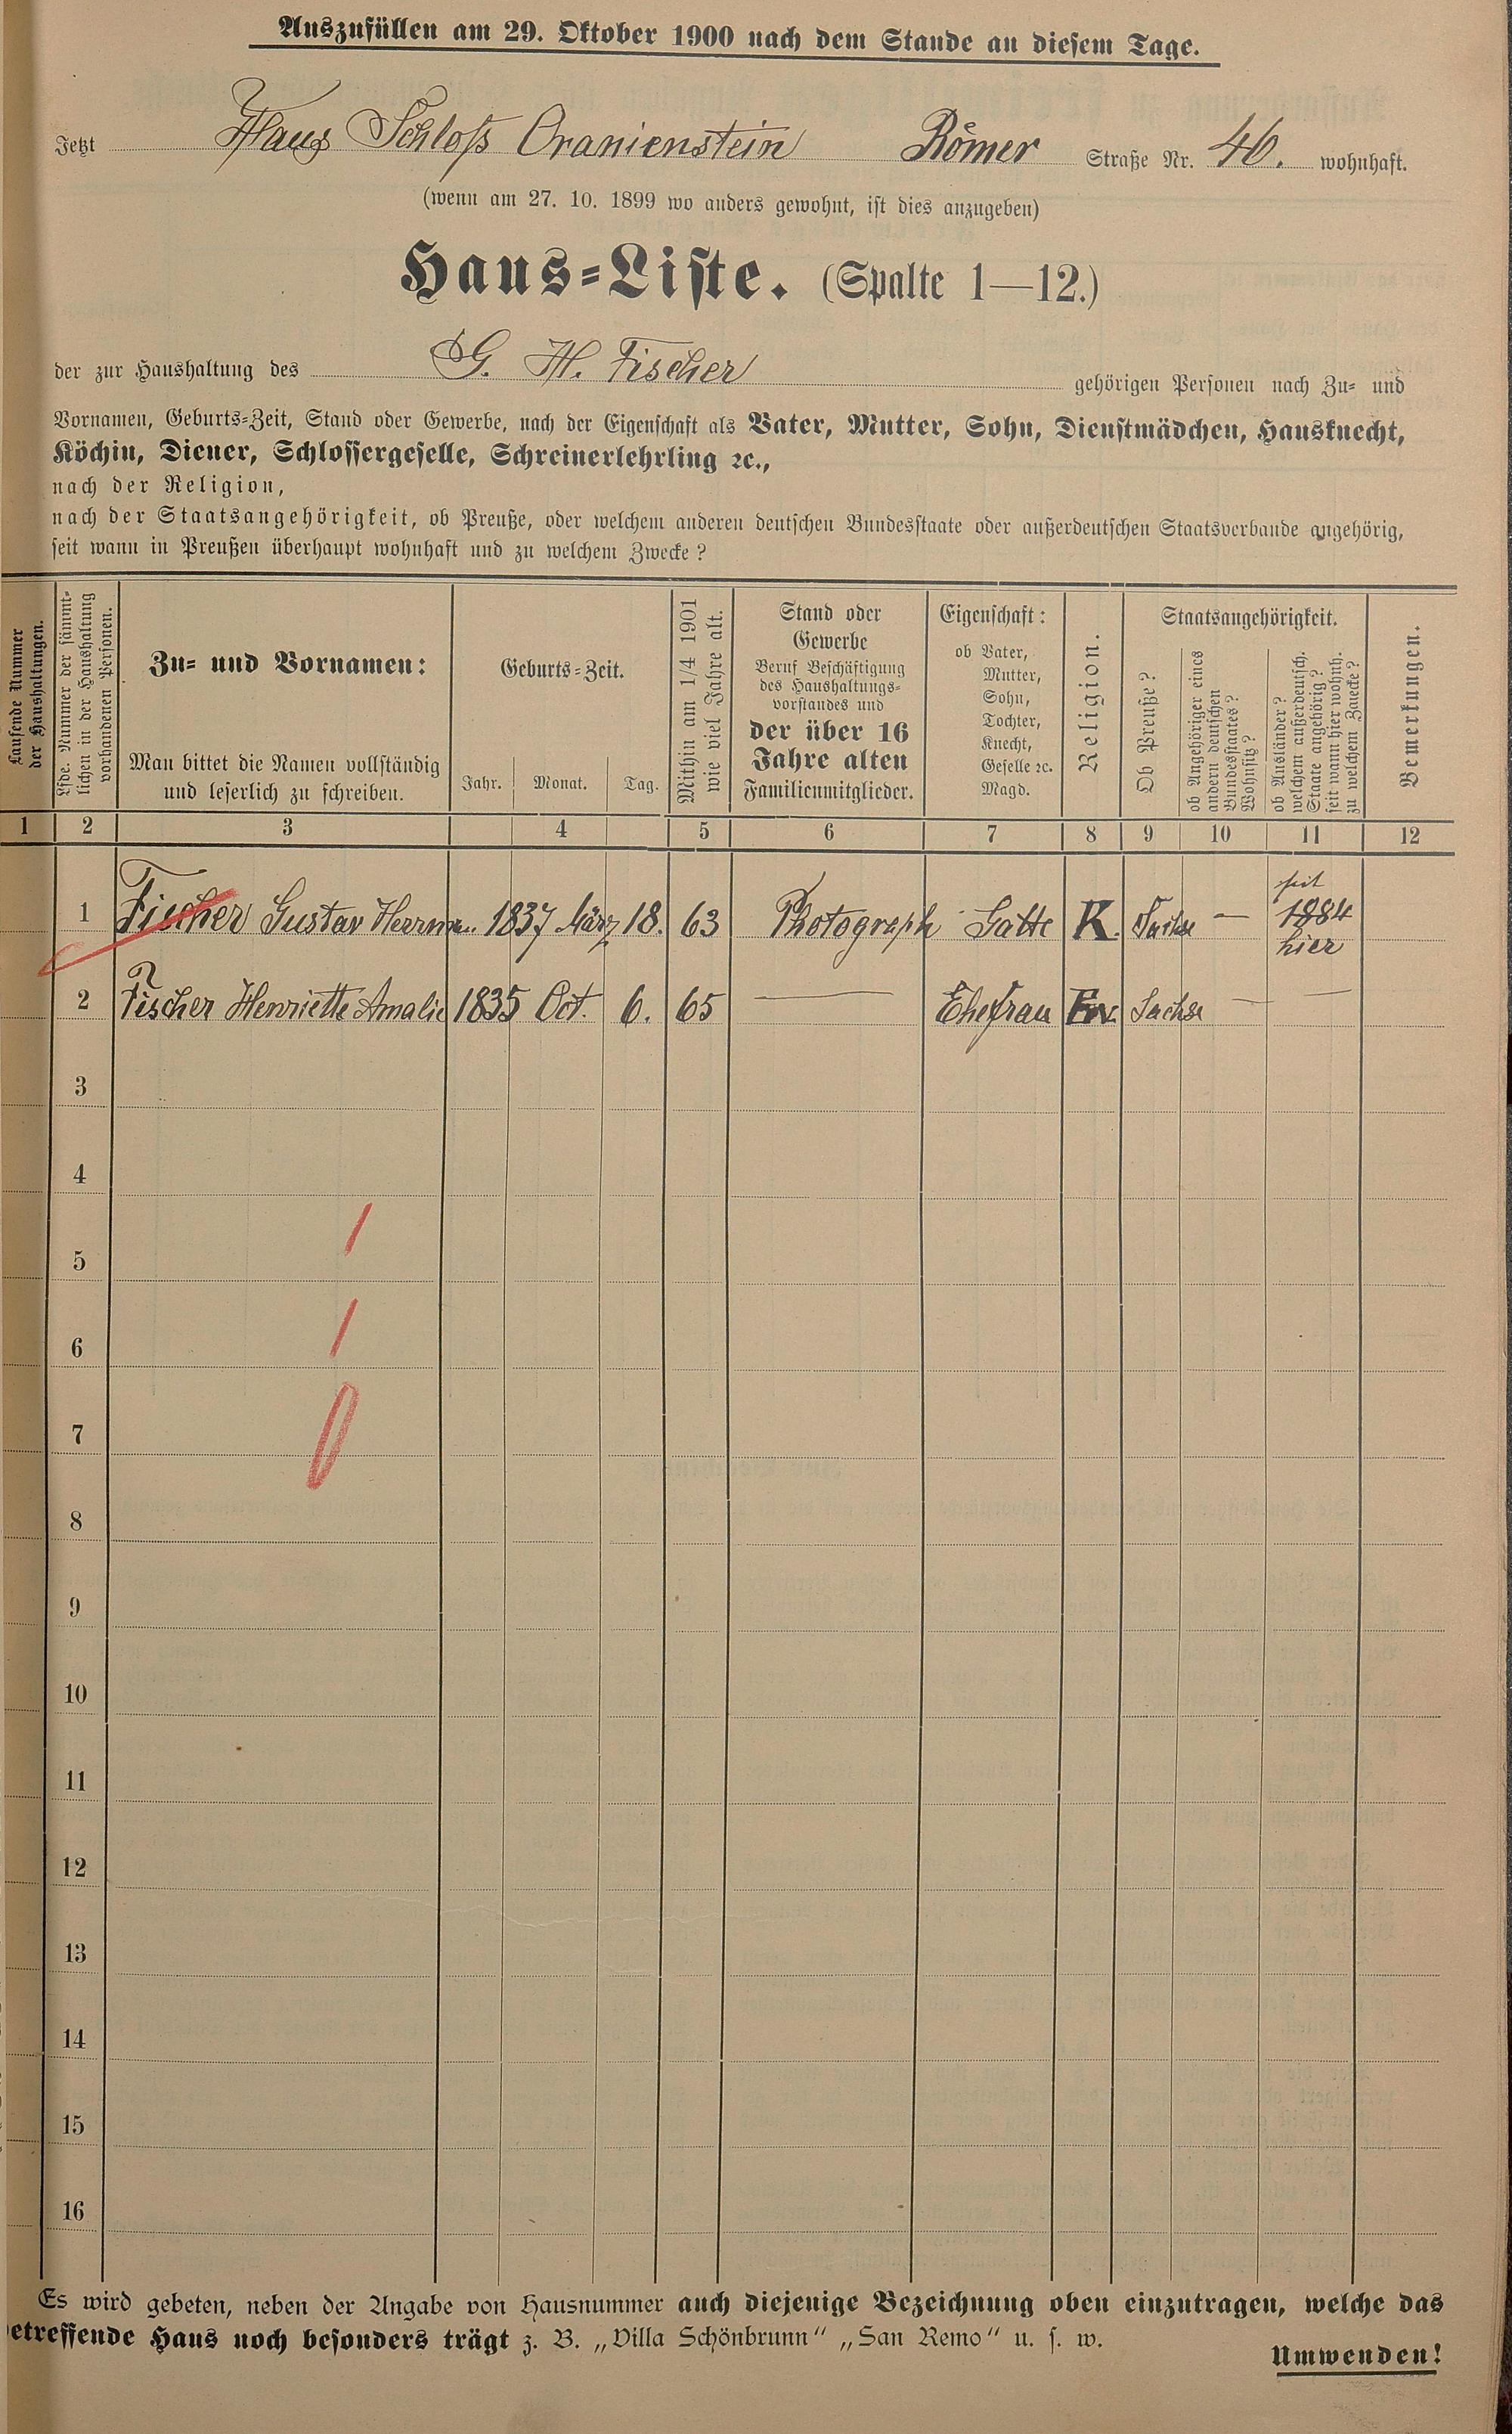 Auszufüllen am 29. Oktober 1900 nach dem Stande an diesem Tage.
Jetzt Haus Schloß Oranienstein Römer Straße Nr. 46. wohnhaft.
(wenn am 27. 10. 1899 wo anders gewohnt, ist dies anzugeben)
Haus-Liste. (Spalte 1—12.)
der zur Haushaltung des G. H. Fischer gehörigen Personen nach Zu- und
Vornamen, Geburts-Zeit, Stand oder Gewerbe, nach der Eigenschaft als Vater, Mutter, Sohn, Dienstmädchen, Hausknecht,
Köchin, Diener, Schlossergeselle, Schreinerlehrling ꝛc.,
nach der Religion,
nach der Staatsangehörigkeit, ob Preuße, oder welchem anderen deutschen Bundesstaate oder außerdeutschen Staatsverbande angehörig,
seit wann in Preußen überhaupt wohnhaft und zu welchem Zwecke?
Laufende Nummer
der Haushaltungen.
Lfde. Nummer der sämmt-
lichen in der Haushaltung
vorhandenen Personen.
Zu- und Vornamen:
Man bittet die Namen vollständig
und leserlich zu schreiben.
Geburts-Zeit.
Jahr. Monat. Tag.
Mithin am 1/4 1901
wie viel Jahre alt.
Stand oder
Gewerbe
Beruf Beschäftigung
des Haushaltungs-
vorstandes und
der über 16
Jahre alten
Familienmitglieder.
Eigenschaft:
ob Vater,
Mutter,
Sohn,
Tochter,
Knecht,
Geselle ꝛc.
Magd.
Religion.
Staatsangehörigkeit.
Ob Preuße?
ob Angehöriger eines
andern deutschen
Bundesstaates?
Wohnsitz?
ob Ausländer?
welchem außerdeutsch.
Staate angehörig?
seit wann hier wohnh.
zu welchem Zwecke?
Bemerkungen.
1 2 3 4 5 6 7 8 9 10 11 12
1 Fischer Gustav Herrmann. 1837 März 18. 63 Photograph Gatte K. Sachse — seit 1884 hier
2 Fischer Henriette Amalie 1835 Oct. 6. 65 — Ehefrau Ev. Sachse — —
3
4
5
6
7
8
9
10
11
12
13
14
15
16
Es wird gebeten, neben der Angabe von Hausnummer auch diejenige Bezeichnung oben einzutragen, welche das
etreffende Haus noch besonders trägt z. B. „Villa Schönbrunn“ „San Remo“ u. s. w.
Umwenden!